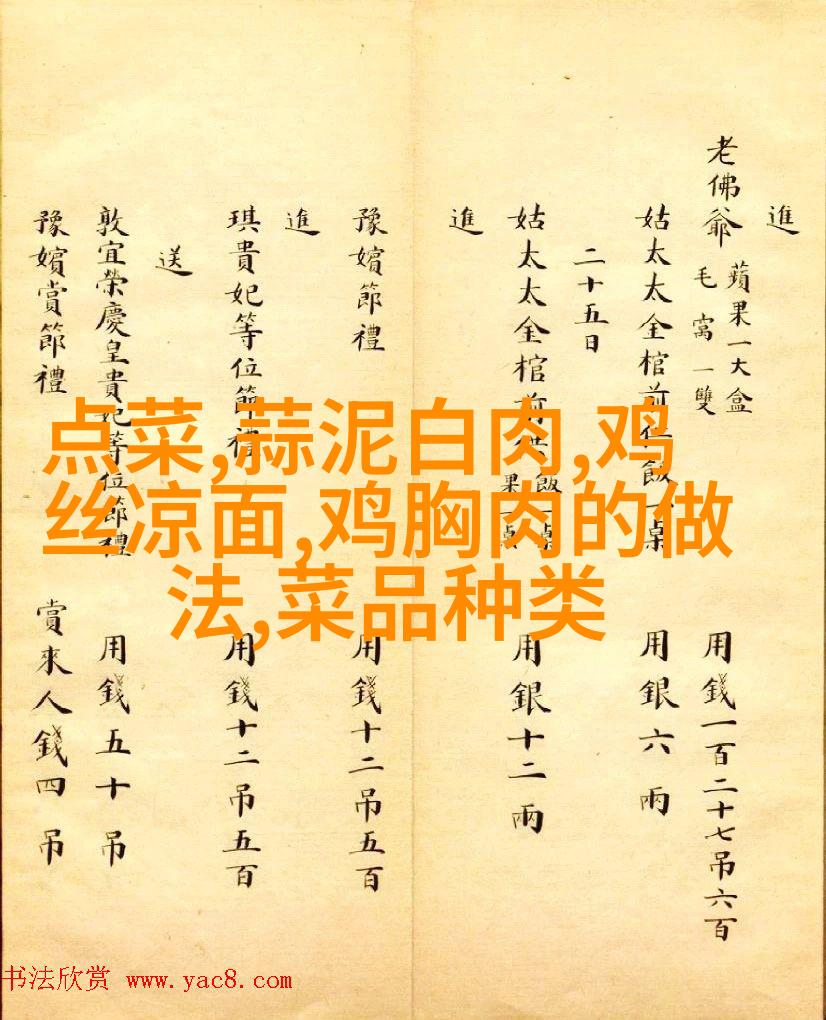 進
老佛爺 蘋果一大盒 毛窩一雙 用錢一百二十七吊六百
姑太太金棺前供飯一桌 用銀六兩
二十五日
姑太太金棺前供飯一桌 果一桌 用銀十二兩
進
豫嬪節禮 用錢十二吊五百
進
琪貴妃等位節禮 用錢十二吊五百
送
敦宜榮慶皇貴妃等位節禮 用錢五十吊
豫嬪賞節禮 賞來人錢四吊
点菜,蒜泥白肉,鸡
丝凉面,鸡胸肉的做
法,菜品种类
书法欣赏 www.yac8.com